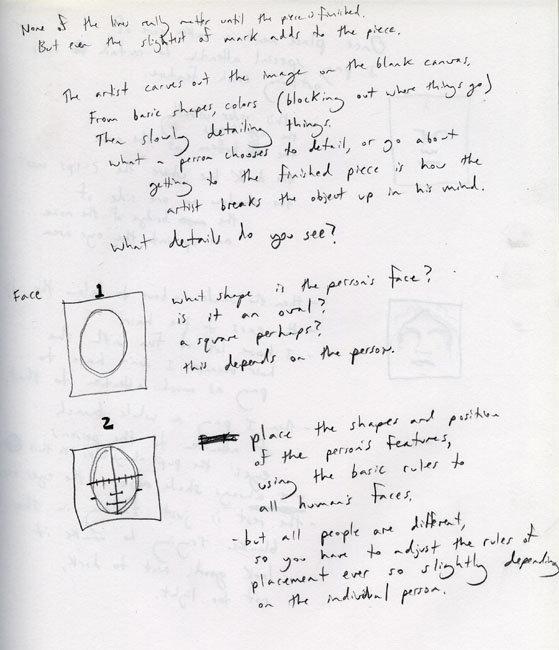 None of the lines really matter until the piece is finished.
But even the slightest of mark adds to the piece.
The artist carves out the image on the blank canvas,
From basic shapes, colors (blocking out where things go)
Then slowly detailing things.
what a person chooses to detail, or go about
getting to the finished piece is how the
artist breaks the object up in his mind.
what details do you see?
Face
1
what shape is the person's face?
is it an oval?
a square perhaps?
this depends on the person.
2
place the shapes and position
of the person's features,
using the basic rules to
all human's faces.
- but all people are different,
so you have to adjust the rules of
placement ever so slightly depending
on the individual person.